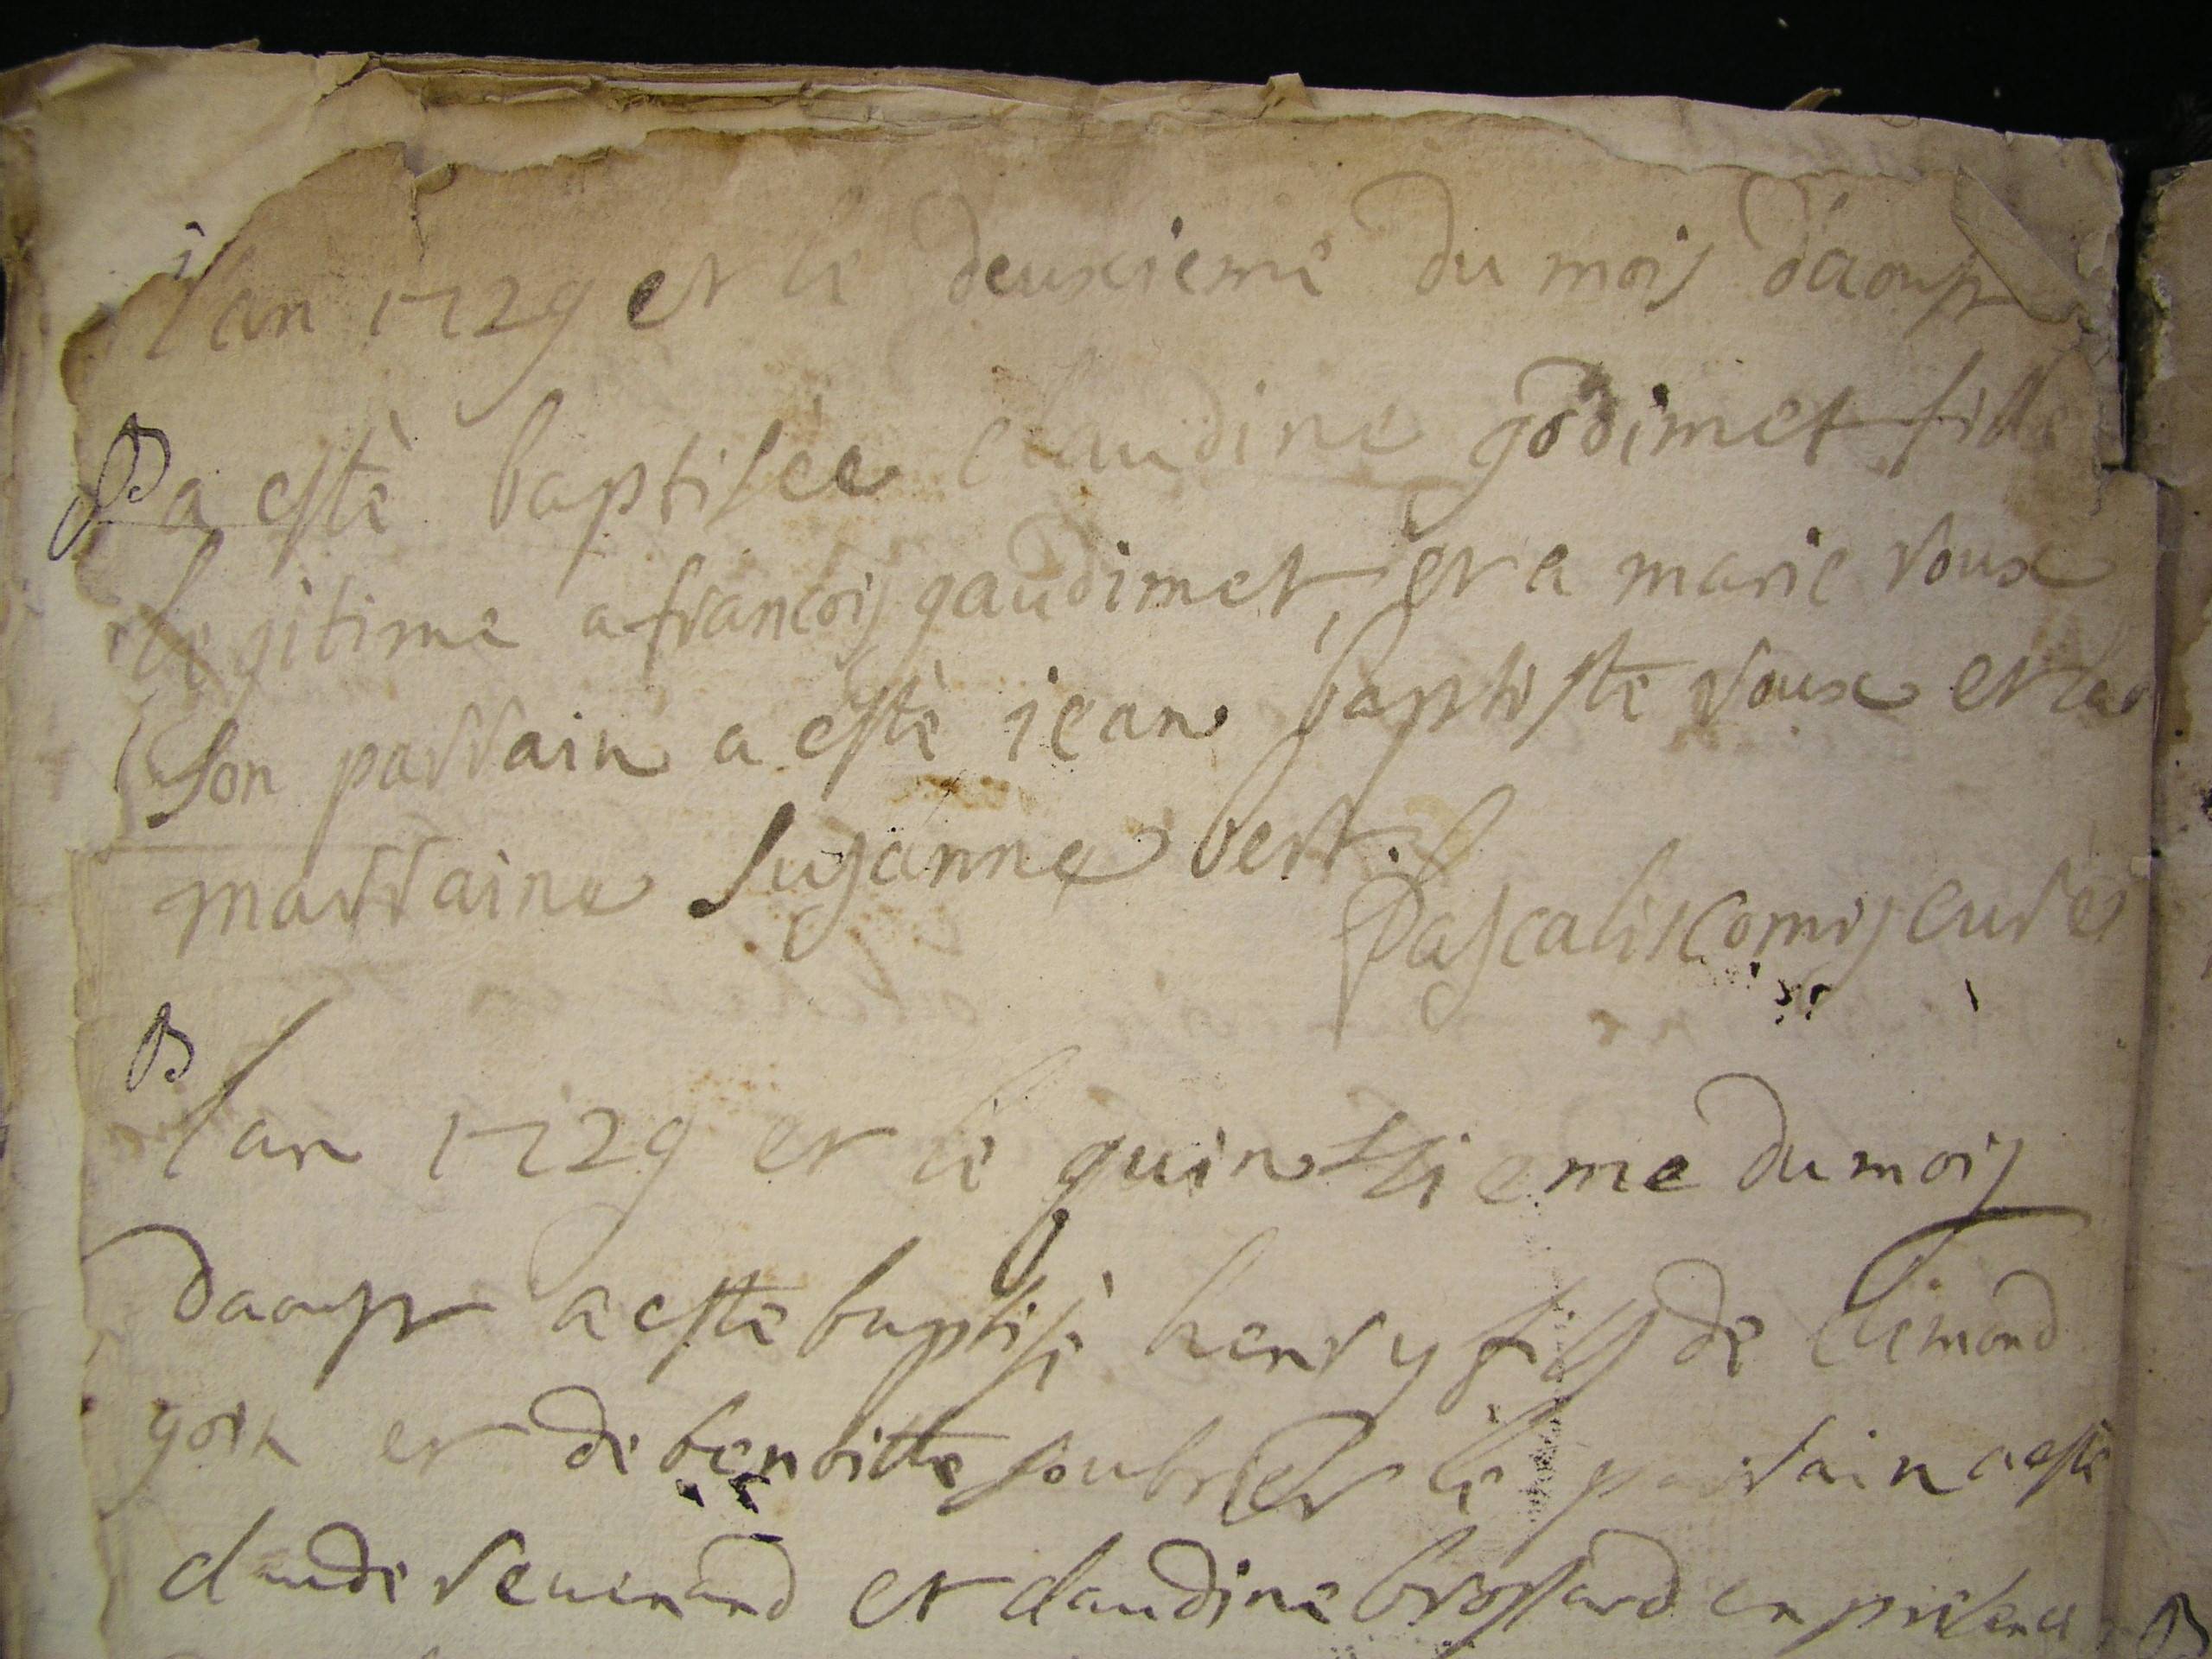 lan 1729 et le deuxieme du mois d'aoust
B a esté baptisée claudine godimet fille
legitime a francois gaudimet, et a marie roux
son parrain a esté jean baptiste roux et la
marraine suzanne bert.
Pascalis comis curé
B
lan 1729 et le quinssieme du mois
daoust a esté baptisé henry fils de
goin et de benoitte le parrain a esté
claude reverand et claudine brossard en presence
B